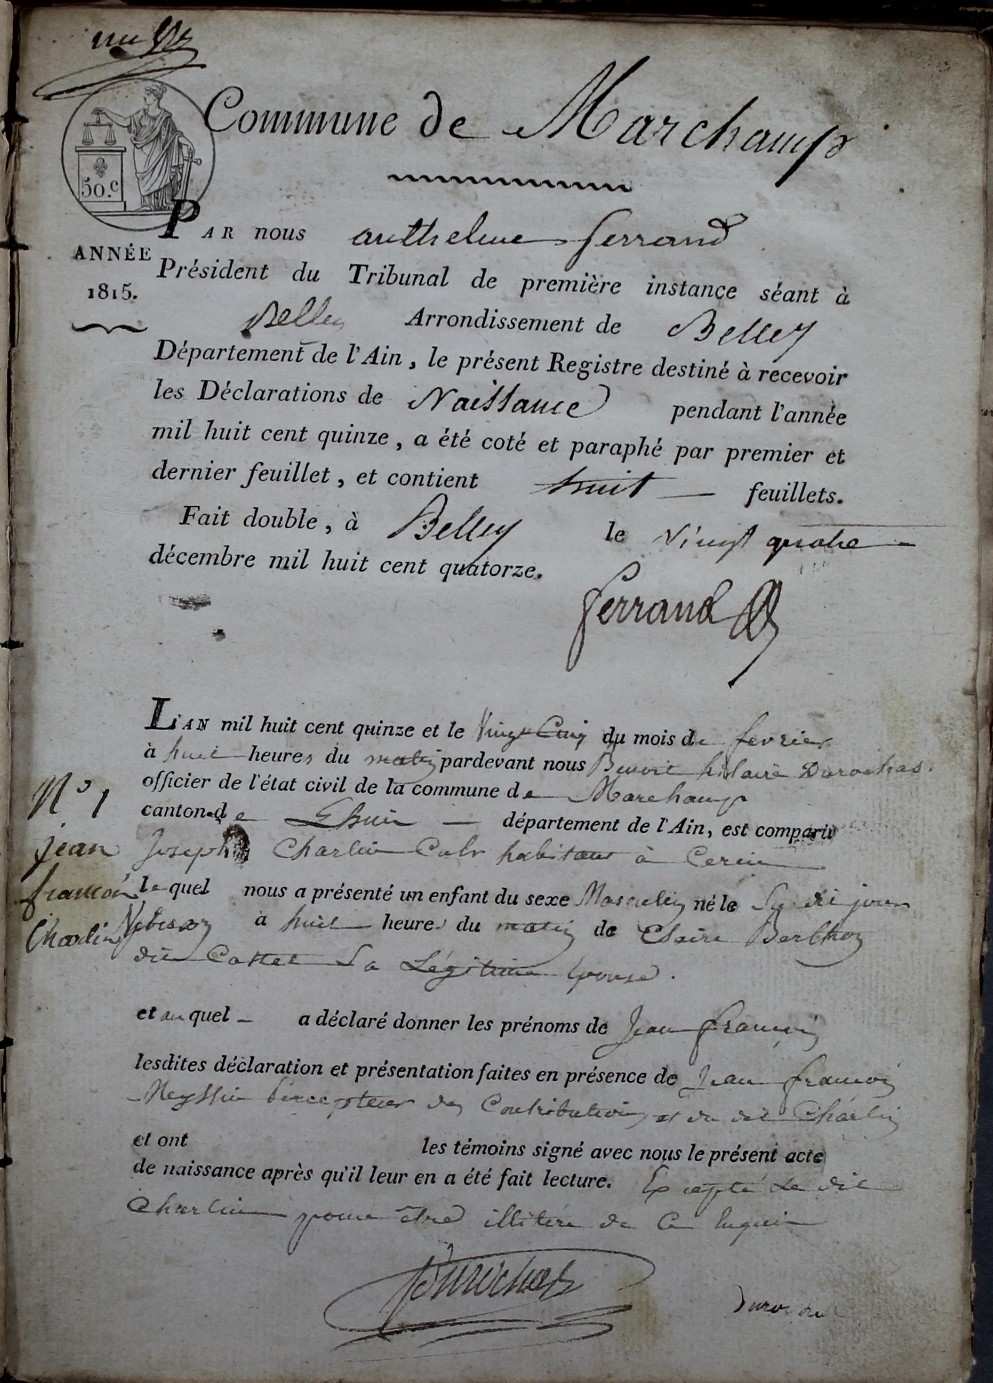 Commune de Marchamp
50.c
ANNÉE
1815.
PAR nous anthelme ferrand
Président du Tribunal de première instance séant à
Belley Arrondissement de Belley
Département de l'Ain, le présent Registre destiné à recevoir
les Déclarations de Naissance pendant l'année
mil huit cent quinze, a été coté et paraphé par premier et
dernier feuillet, et contient huit feuillets.
Fait double, à Belley le vingt quatre
décembre mil huit cent quatorze.
ferrand
L'AN mil huit cent quinze et le Vingt Cinq du mois de fevrier
à huit heures du matin pardevant nous Benoit hilaire Durochas
officier de l'état civil de la commune de Marchamp
canton de Lhuis département de l'Ain, est comparu
Joseph Charlin habitant à Cerin
lequel nous a présenté un enfant du sexe Masculin né le jour
à huit heures du matin de Claire Berthoz
dit Castel Sa Légitime épouse.
et auquel a déclaré donner les prénoms de Jean françois
lesdites déclaration et présentation faites en présence de Jean françois
percepteur des Contributions et du dit Charlin
et ont les témoins signé avec nous le présent acte
de naissance après qu'il leur en a été fait lecture. Excepté Le dit
Charlin pour être illitéré de Ce Enquis
N° 1
jean
françois
Charlin
Durochas